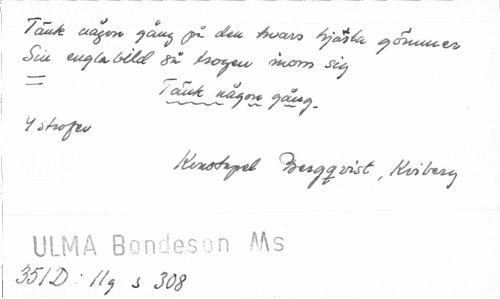 Tänk någon gång på den hvars hjärta gömmer
Sin englabild så trogen inom sig
=
Tänk någon gång.
4 strofer
Konstapel Bergqvist, Kviberg
ULMA Bondeson Ms
351D: 11g s 308